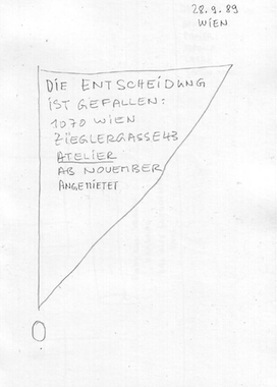 28.9.89
WIEN
DIE ENTSCHEIDUNG
IST GEFALLEN:
1070 WIEN
ZIEGLERGASSE 43
ATELIER
AB NOVEMBER
ANGEMIETET
0